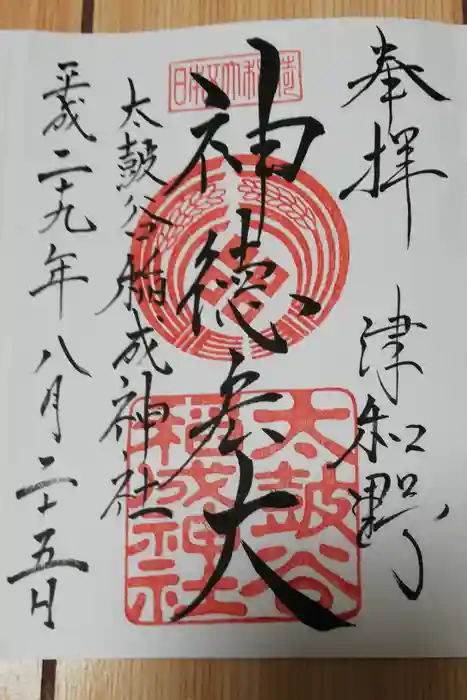 奉拝 津和野
日本五大稲荷
神徳広大
太皷谷稲成神社
太鼓谷稲成神社
平成二十九年八月二十五日